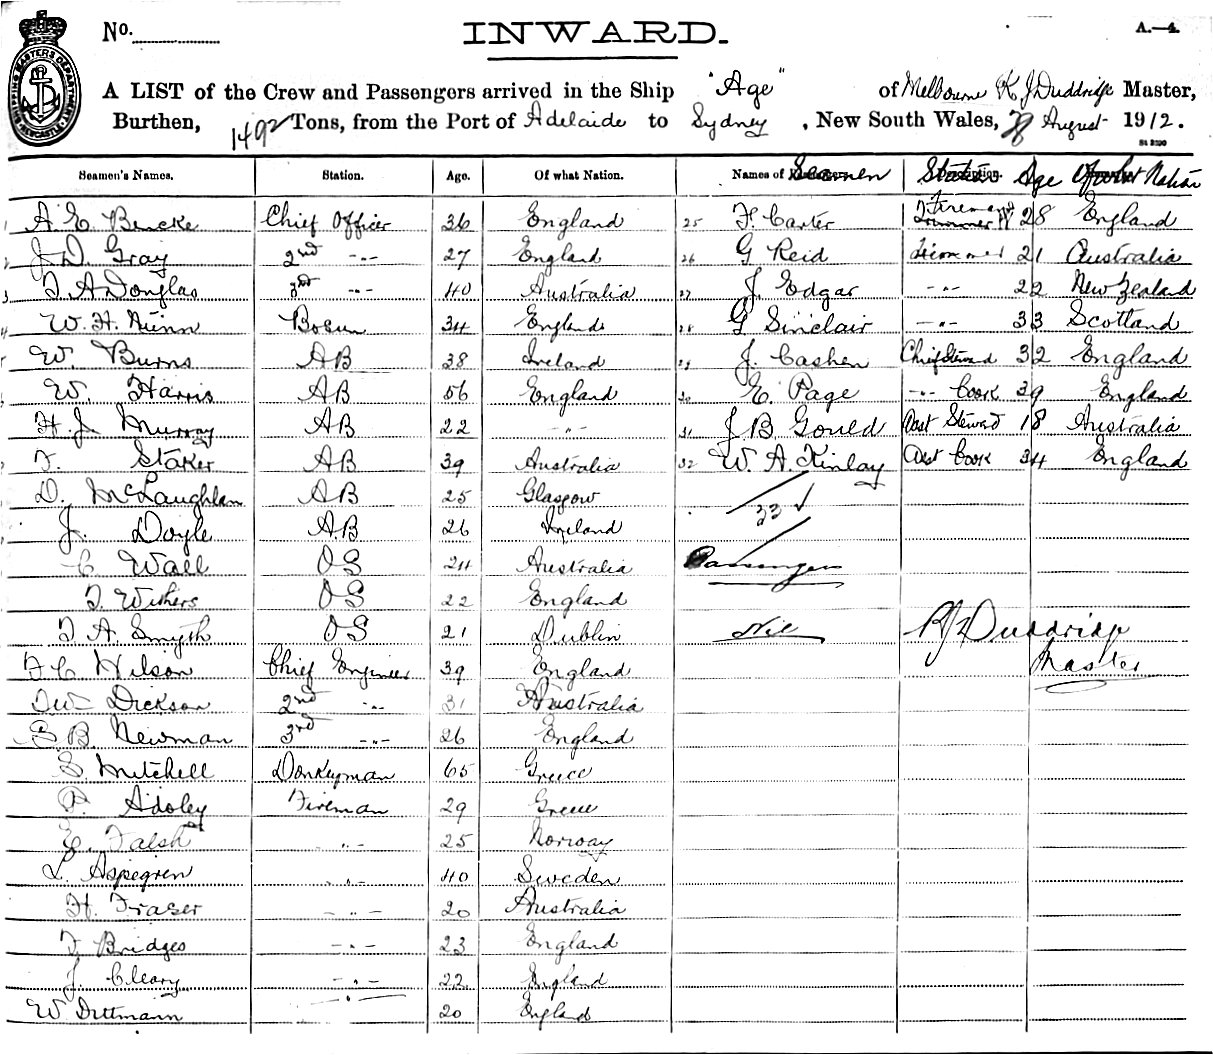 No.
INWARD.
A.—4.
A LIST of the Crew and Passengers arrived in the Ship "Age" of Melbourne K. J Duddridge Master,
Burthen, 1492 Tons, from the Port of Adelaide to Sydney, New South Wales, August 1912.
Seamen's Names. Station. Age. Of what Nation. Names of Seamen Station Age Of what Nation
1 A. E. Bencke Chief Officer 36 England 25 F. Carter Fireman 28 England
2 J. D. Gray 2nd -"- 27 England 26 G Reid Trimmer 21 Australia
3 T. A Douglas 3rd -"- 40 Australia 27 J. Edgar -"- 22 New Zealand
4 W. H. Nunn Bosun 34 England 28 G Sinclair -"- 33 Scotland
5 W. Burns AB 38 Ireland 29 J. Cashen Chief Steward 32 England
W. Harris AB 56 England 30 E. Page -"- Cook 39 England
H. J. Murray AB 22 -"- 31 J B Gould Asst Steward 18 Australia
F. Staker AB 39 Australia 32 W. A. Kinlay Asst Cook 34 England
D. McLaughlan AB 25 Glasgow
33
J. Doyle AB 26 Ireland
C Wall OS 24 Australia Passengers
T. Withers OS 22 England
T A. Smyth OS 21 Dublin Nil KJ Duddridge
Master
F C Wilson Chief Engineer 39 England
TW Dickson 2nd -"- 31 Australia
S. B. Newman 3rd -"- 26 England
S. Mitchell Donkeyman 65 Greece
P. Adoley Fireman 29 Greece
E. Falsh -"- 25 Norway
L. Aspegren -"- 40 Sweden
H. Fraser -"- 20 Australia
F. Bridges -"- 23 England
J. Cleary -"- 22 England
W. Dittmann -"- 20 England